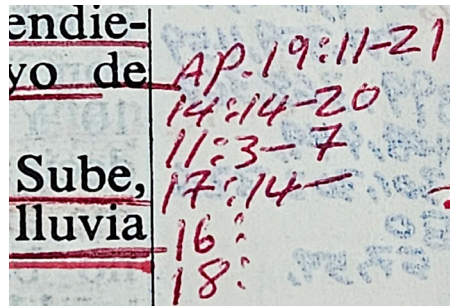 endie-
yo de
Sube,
lluvia
AP. 19:11-21
14:14-20
11:3-7
17:14-
16:
18: